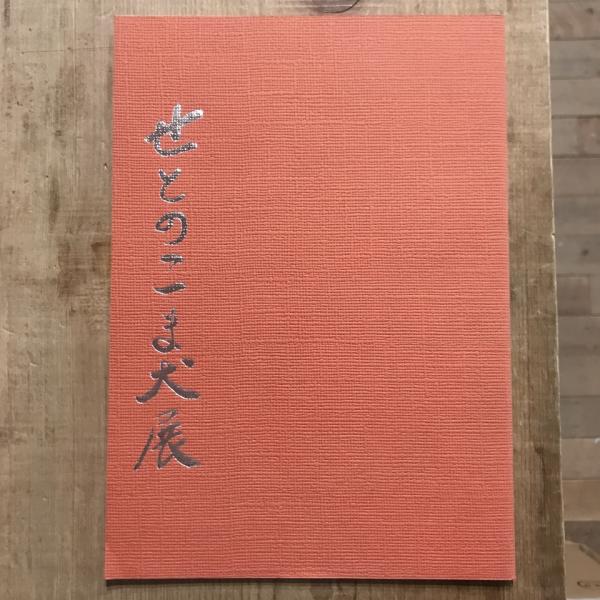 せとのこま犬展